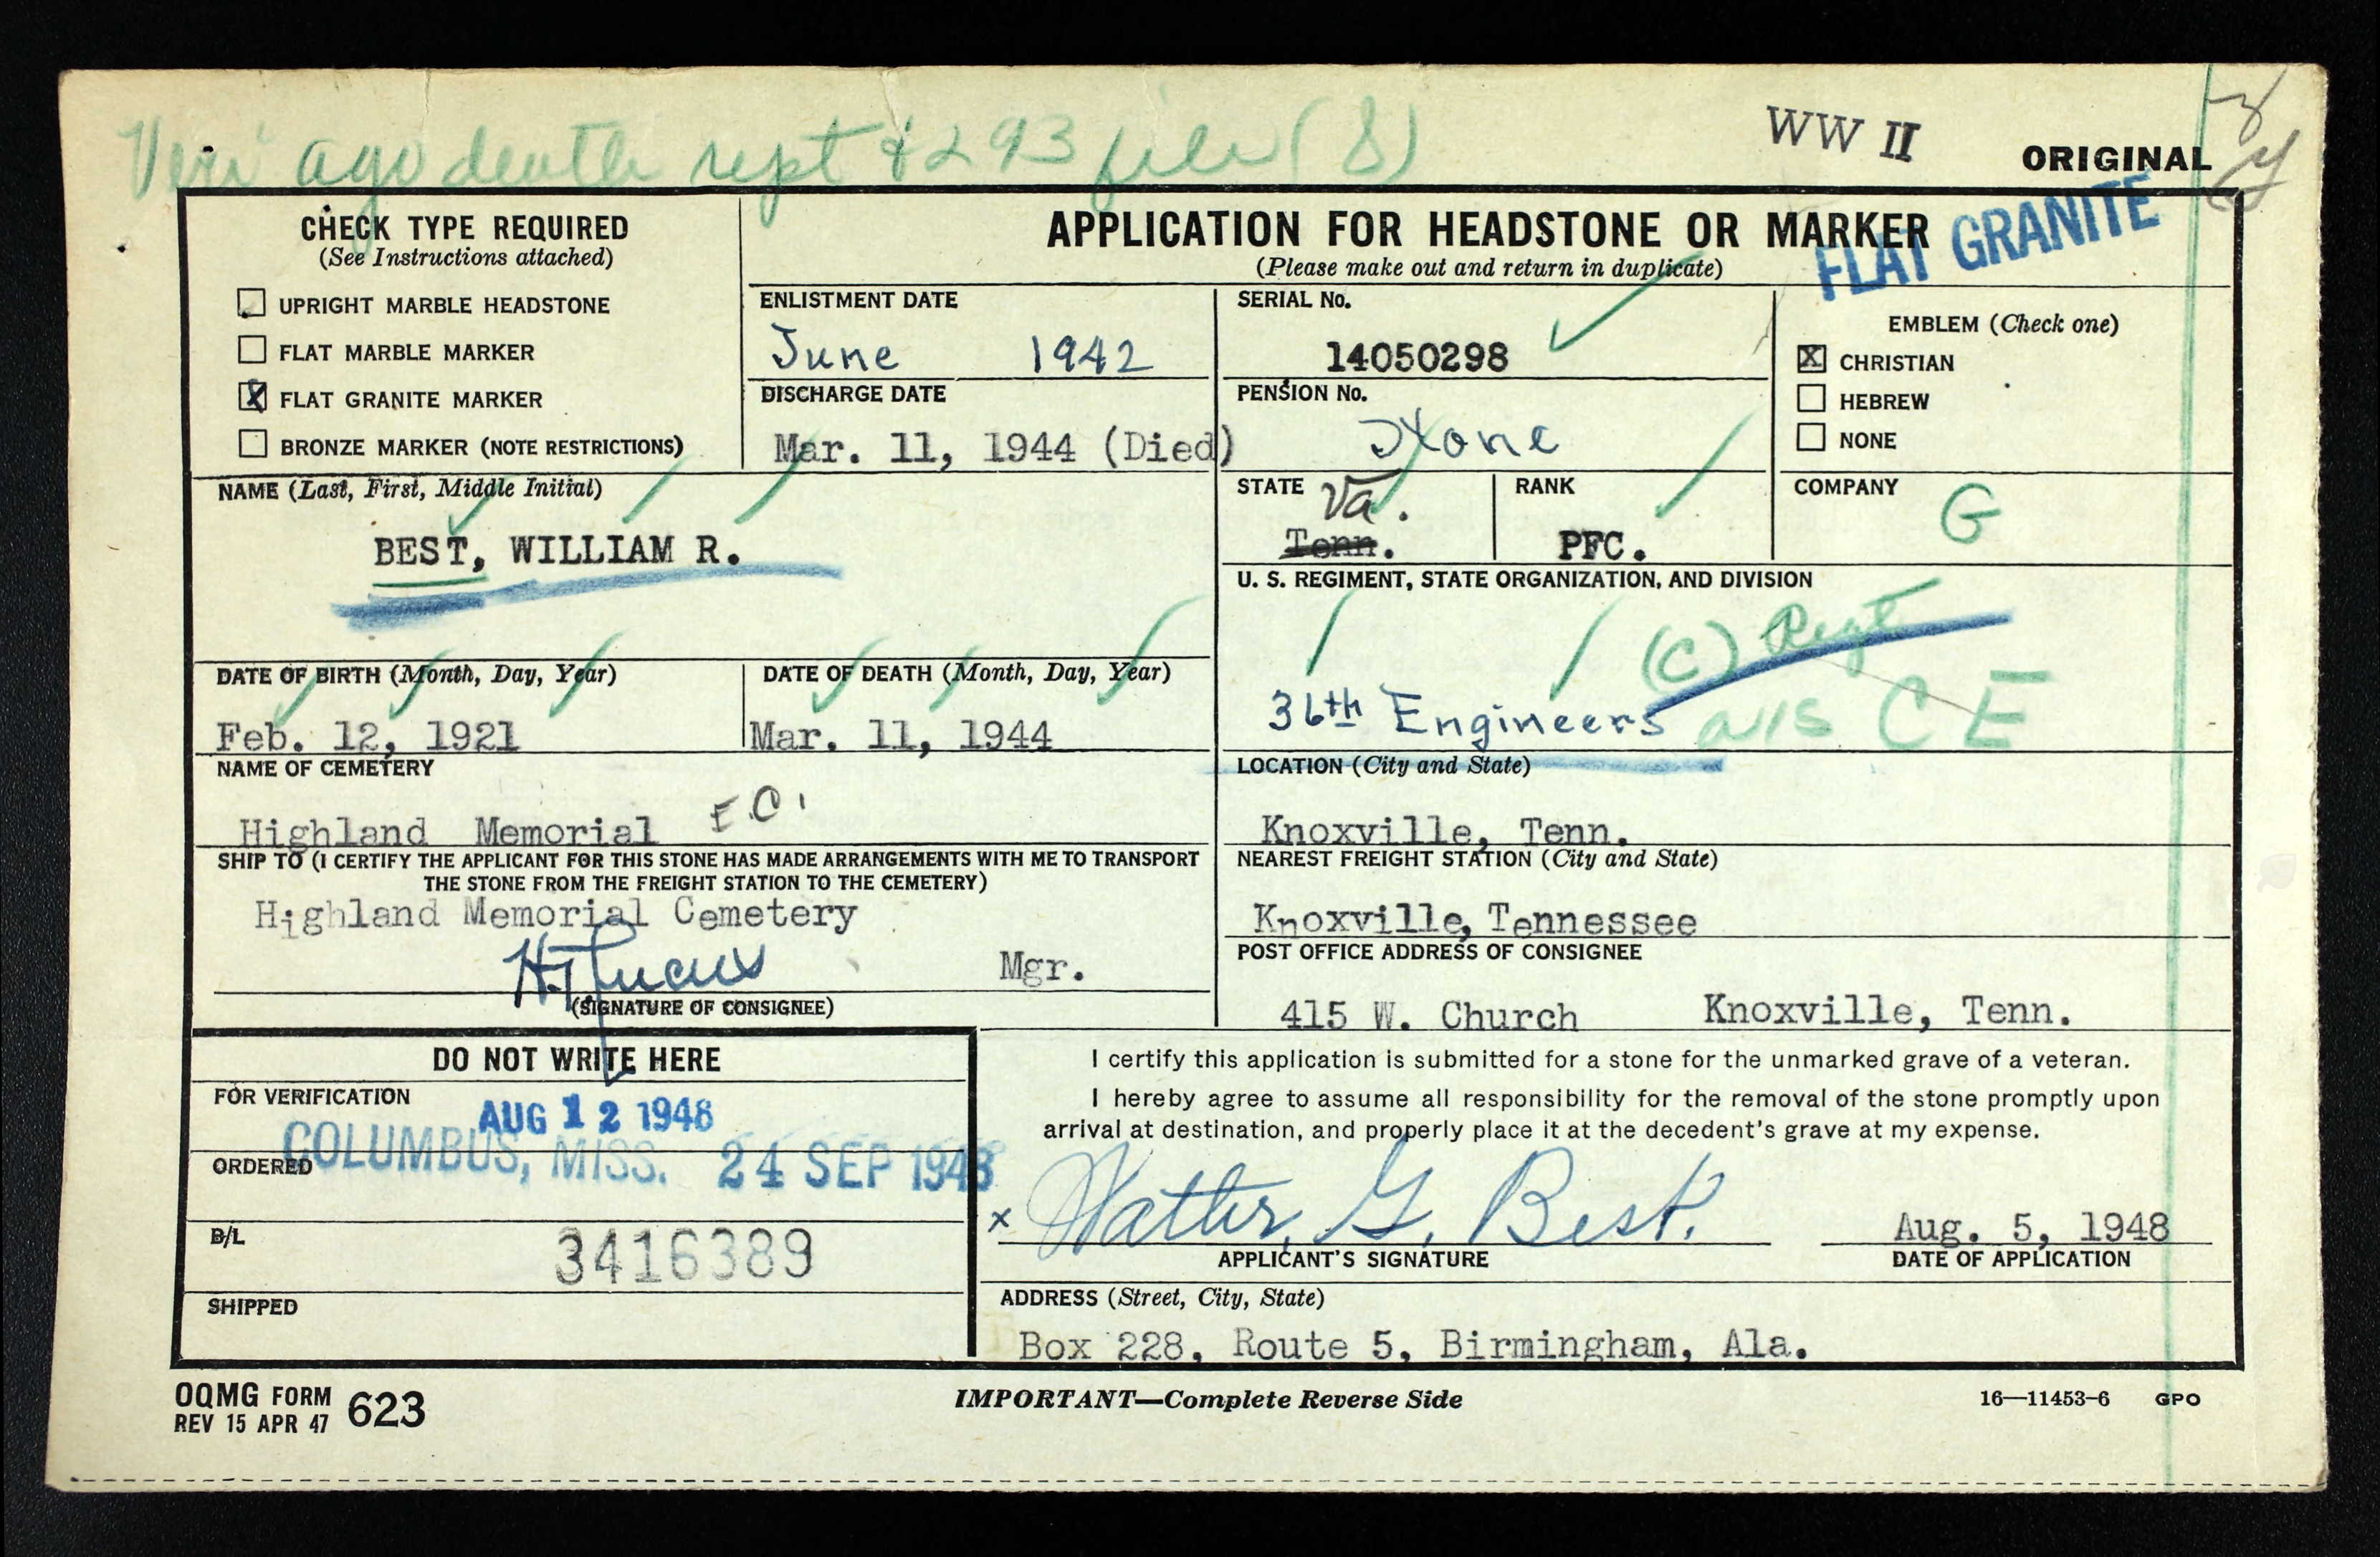 Veri ago death rept & 293 file (S)
WW II
ORIGINAL
FLAT GRANITE
CHECK TYPE REQUIRED
(See Instructions attached)
UPRIGHT MARBLE HEADSTONE
FLAT MARBLE MARKER
X FLAT GRANITE MARKER
BRONZE MARKER (NOTE RESTRICTIONS)
APPLICATION FOR HEADSTONE OR MARKER
(Please make out and return in duplicate)
ENLISTMENT DATE
June 1942
DISCHARGE DATE
Mar. 11, 1944 (Died)
SERIAL No.
14050298
PENSION No.
None
EMBLEM (Check one)
X CHRISTIAN
HEBREW
NONE
NAME (Last, First, Middle Initial)
BEST, WILLIAM R.
STATE Va.
Tenn.
RANK
PFC.
COMPANY
G
U. S. REGIMENT, STATE ORGANIZATION, AND DIVISION
(C) Regt
36th Engineers CE
DATE OF BIRTH (Month, Day, Year)
Feb. 12, 1921
DATE OF DEATH (Month, Day, Year)
Mar. 11, 1944
NAME OF CEMETERY
Highland Memorial
LOCATION (City and State)
Knoxville, Tenn.
SHIP TO (I CERTIFY THE APPLICANT FOR THIS STONE HAS MADE ARRANGEMENTS WITH ME TO TRANSPORT
THE STONE FROM THE FREIGHT STATION TO THE CEMETERY)
Highland Memorial Cemetery
Mgr.
(SIGNATURE OF CONSIGNEE)
NEAREST FREIGHT STATION (City and State)
Knoxville, Tennessee
POST OFFICE ADDRESS OF CONSIGNEE
415 W. Church Knoxville, Tenn.
DO NOT WRITE HERE
FOR VERIFICATION
AUG 12 1948
ORDERED
COLUMBUS, MISS. 24 SEP 1948
B/L
3416389
SHIPPED
I certify this application is submitted for a stone for the unmarked grave of a veteran.
I hereby agree to assume all responsibility for the removal of the stone promptly upon
arrival at destination, and properly place it at the decedent's grave at my expense.
x Walter G. Best.
APPLICANT'S SIGNATURE
Aug. 5, 1948
DATE OF APPLICATION
ADDRESS (Street, City, State)
Box 228, Route 5, Birmingham, Ala.
OQMG FORM 623
REV 15 APR 47
IMPORTANT—Complete Reverse Side
16—11453-6 GPO